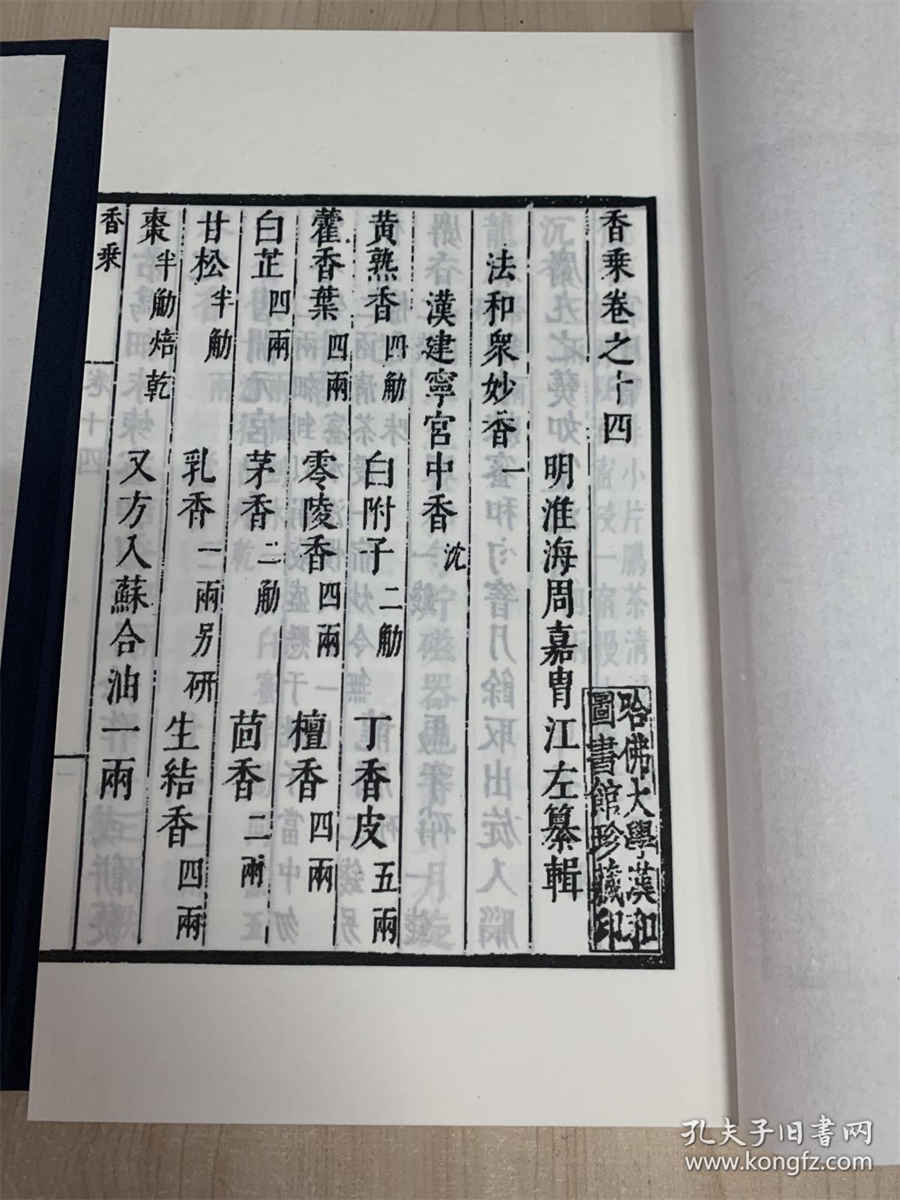 香乘卷之十四
明淮海周嘉胄江左纂輯
哈佛大學漢和
圖書館珍藏印
法和衆妙香一
漢建寧宮中香 沈
黄熟香四觔 白附子二觔 丁香皮五兩
藿香葉四兩 零陵香四兩 檀香四兩
白芷四兩 茅香二觔 茴香二兩
甘松半觔 乳香一兩另研 生結香四兩
棗半觔焙乾 又方入蘇合油一兩
香乘
卷十四
一
孔夫子旧书网
www.kongfz.com